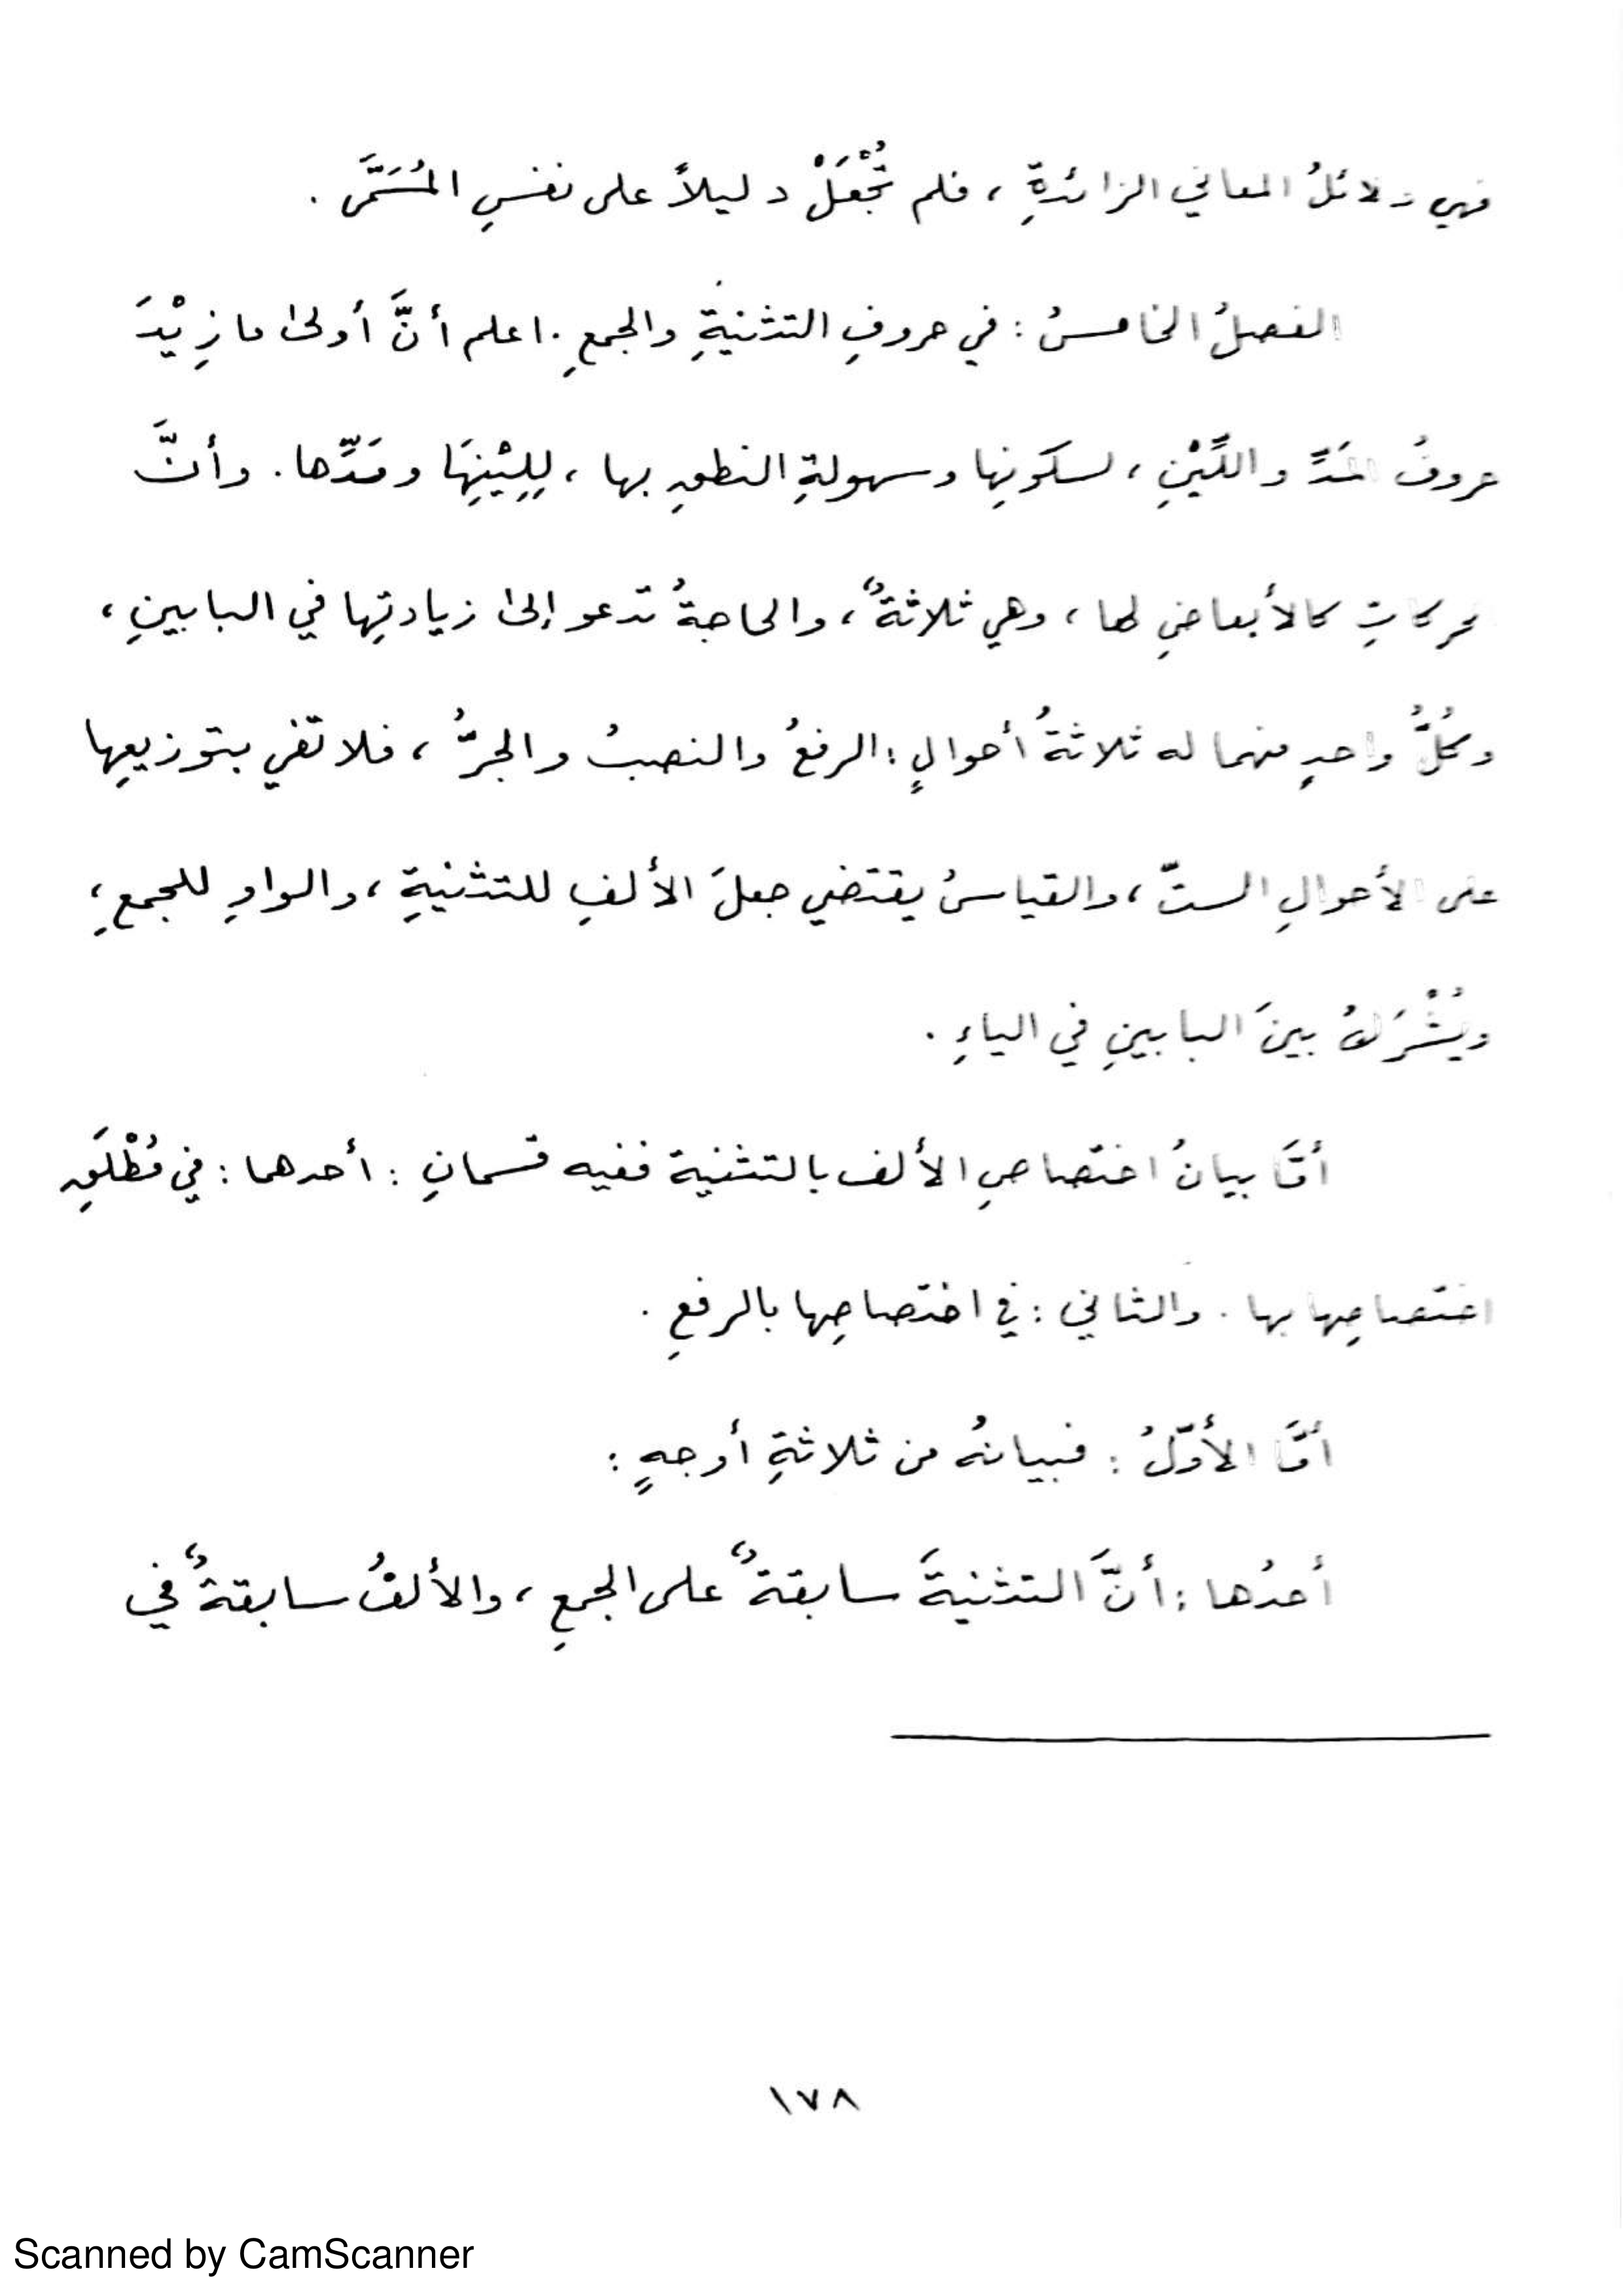 فهي دلائلُ المعاني الزائدةِ ، فلم تُجْعَلْ دليلاً على نفسِ المُسَمَّى .
الفصلُ الخامسُ : في حروفِ التثنيةِ والجمعِ . اعلم أنَّ أولىٰ ما زِيْدَ
حروفُ المَدِّ واللِّيْنِ ، لسكونِها وسهولةِ النطقِ بها ، لِلِيْنِهَا ومَدِّها . وأنَّ
الحركاتِ كالأبعاضِ لها ، وهي ثلاثةٌ ، والحاجةُ تدعو إلىٰ زيادتِها في البابينِ ،
وكُلُّ واحدٍ منهما له ثلاثةُ أحوالٍ : الرفعُ والنصبُ والجرُّ ، فلا تفي بتوزيعِها
على الأحوالِ الستِّ ، والقياسُ يقتضي جعلَ الألفِ للتثنيةِ ، والواوِ للجمعِ ،
ويُشْرَكُ بينَ البابينِ في الياءِ .
أمَّا بيانُ اختصاصِ الألف بالتثنية ففيه قسمانِ : أحدهما : في مُطْلَقِ
اختصاصِها بها . والثاني : في اختصاصِها بالرفعِ .
أمَّا الأوّلُ : فبيانهُ من ثلاثةِ أوجهٍ :
أحدُها : أنَّ التثنيةَ سابقةٌ على الجمعِ ، والألفُ سابقةٌ في
١٧٨
Scanned by CamScanner